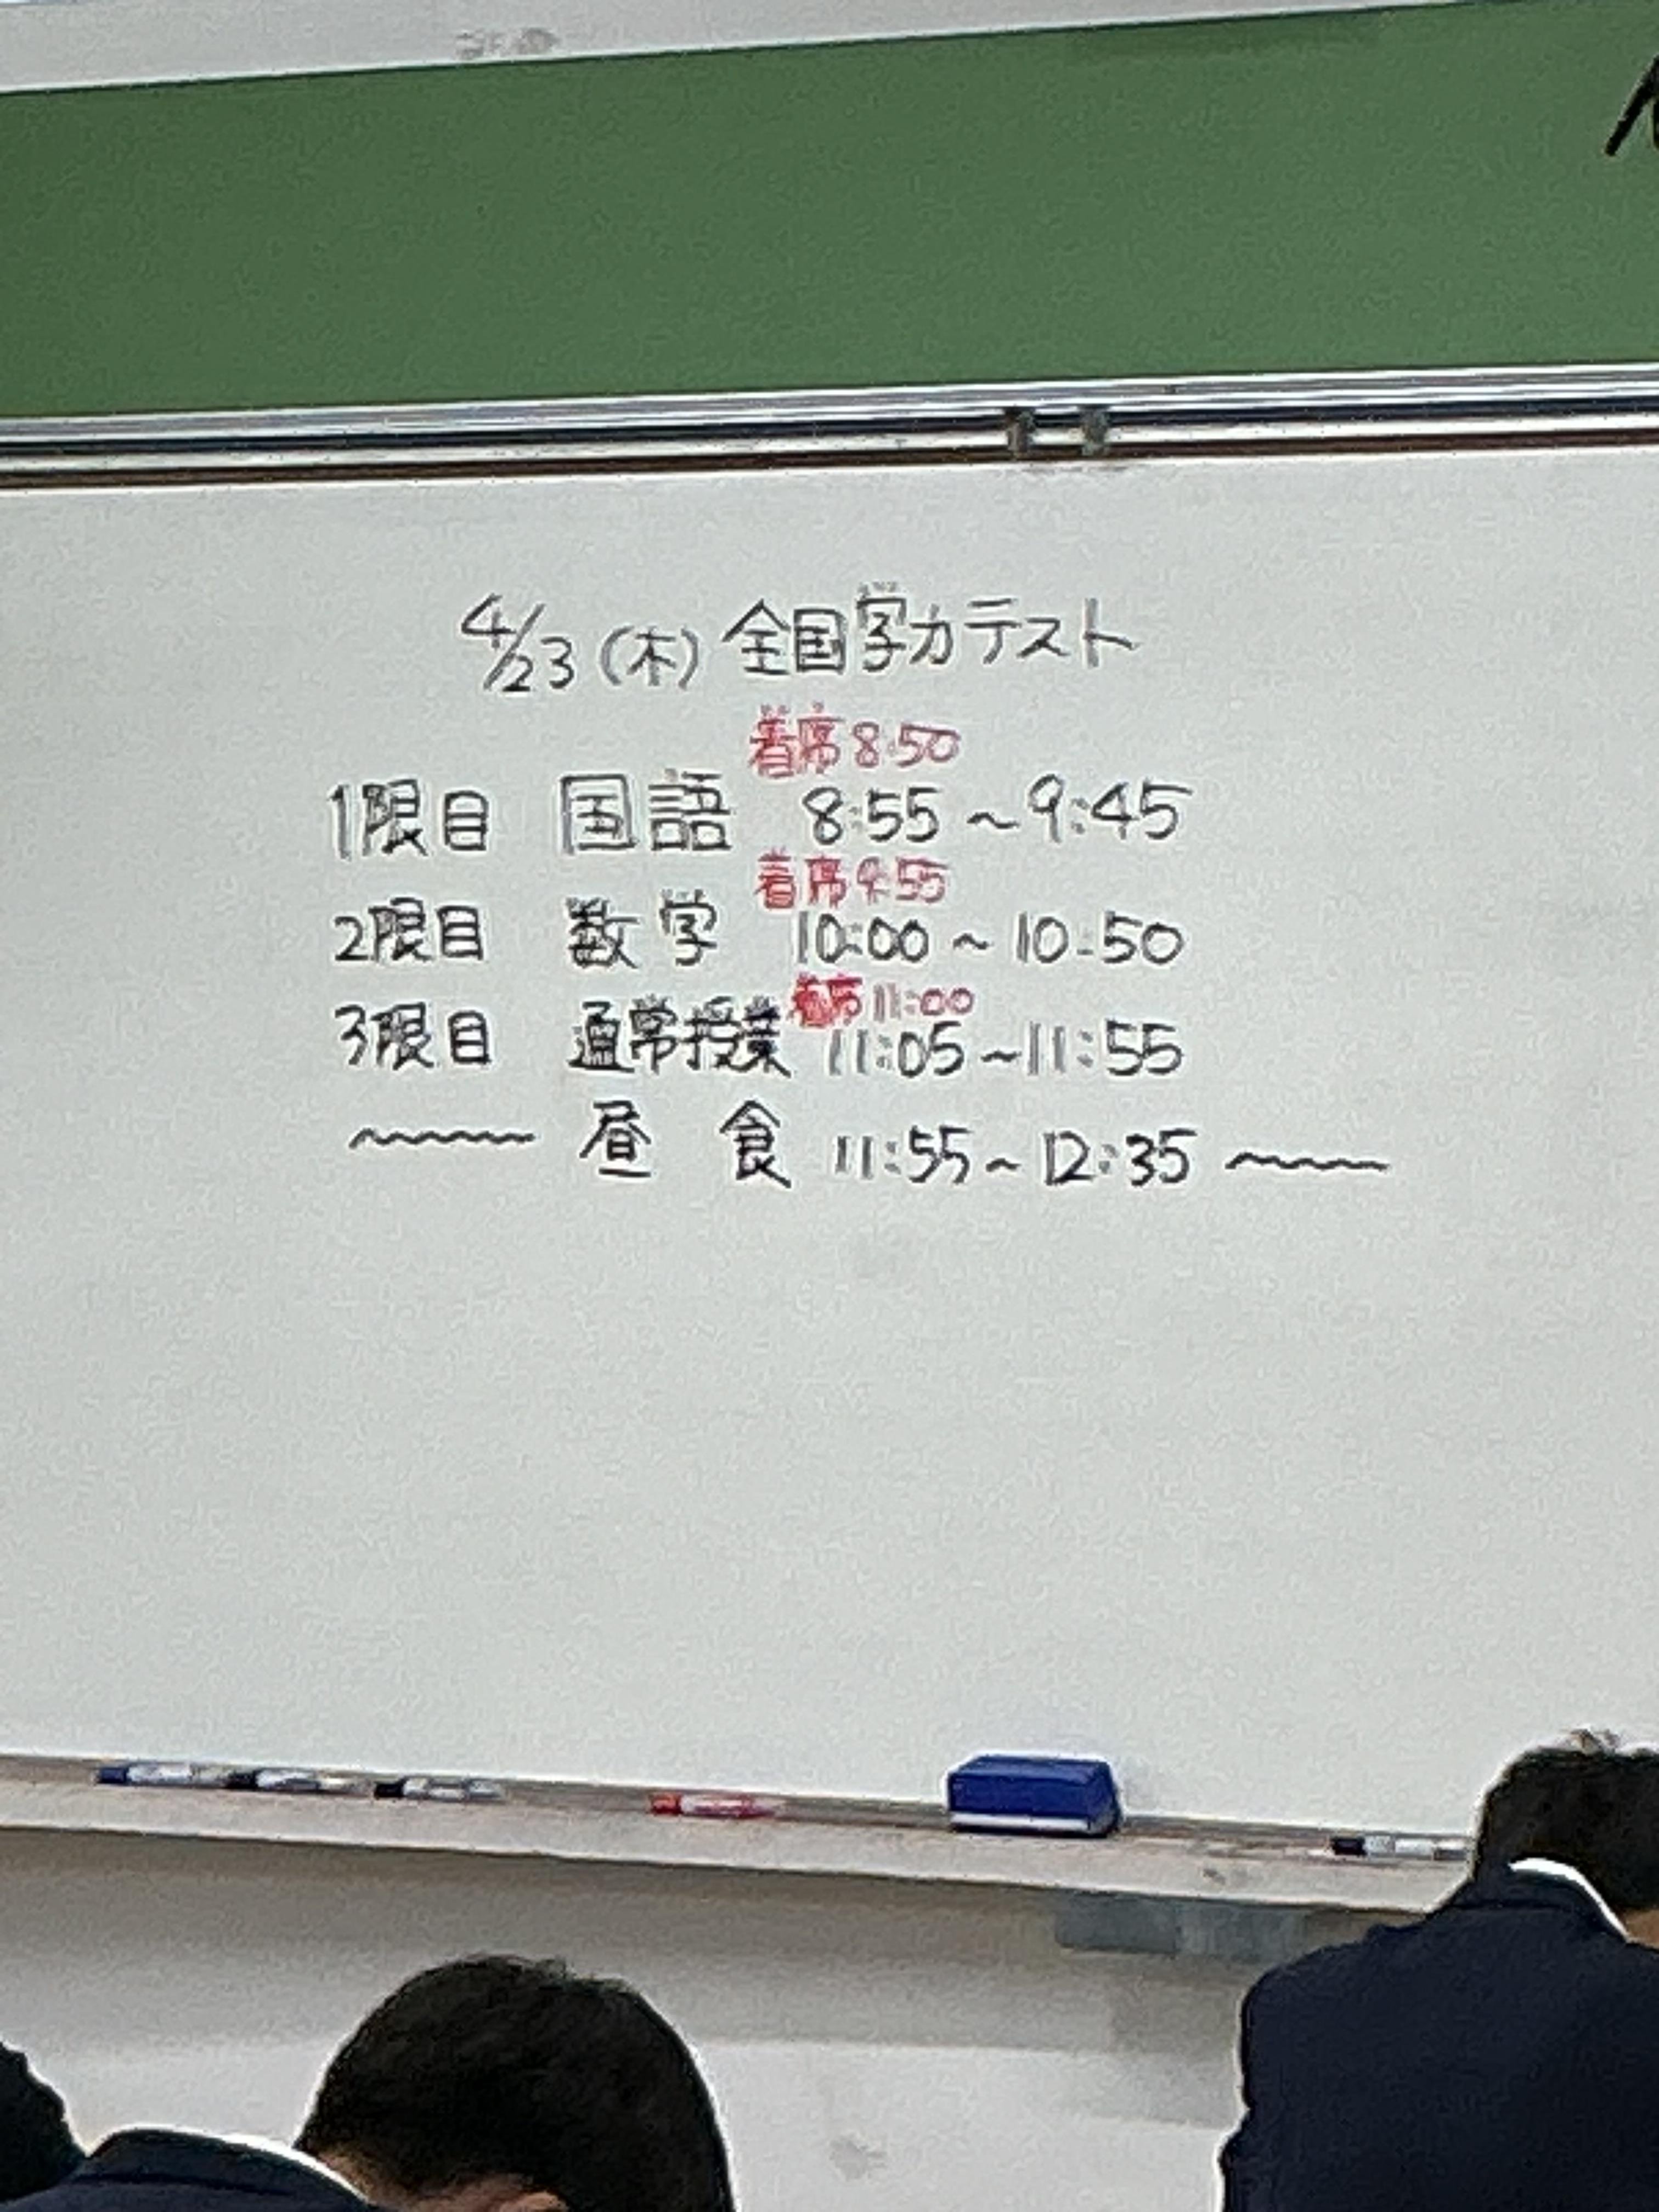 4/23(木) 全国学力テスト
着席 8:50
1限目 国語 8:55～9:45
着席 9:55
2限目 数学 10:00～10:50
着席 11:00
3限目 通常授業 11:05～11:55
～～～ 昼食 11:55～12:35 ～～～